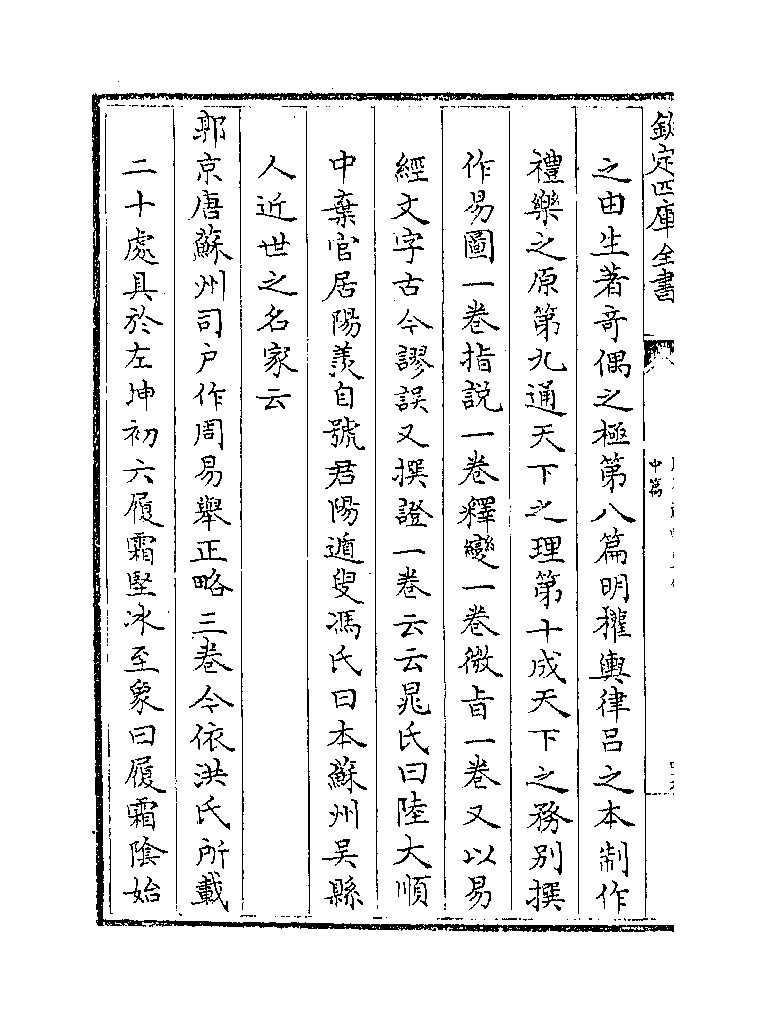 欽定四庫全書
中篇
之由生著奇偶之極第八篇明權輿律呂之本制作
禮樂之原第九通天下之理第十成天下之務別撰
作易圖一卷指說一卷釋變一卷微旨一卷又以易
經文字古今謬誤又撰證一卷云云晁氏曰陸大順
中棄官居陽羨自號君陽遁叟馮氏曰本蘇州吳縣
人近世之名家云
郭京唐蘇州司戶作周易舉正略三卷今依洪氏所載
二十處具於左坤初六履霜堅冰至象曰履霜陰始